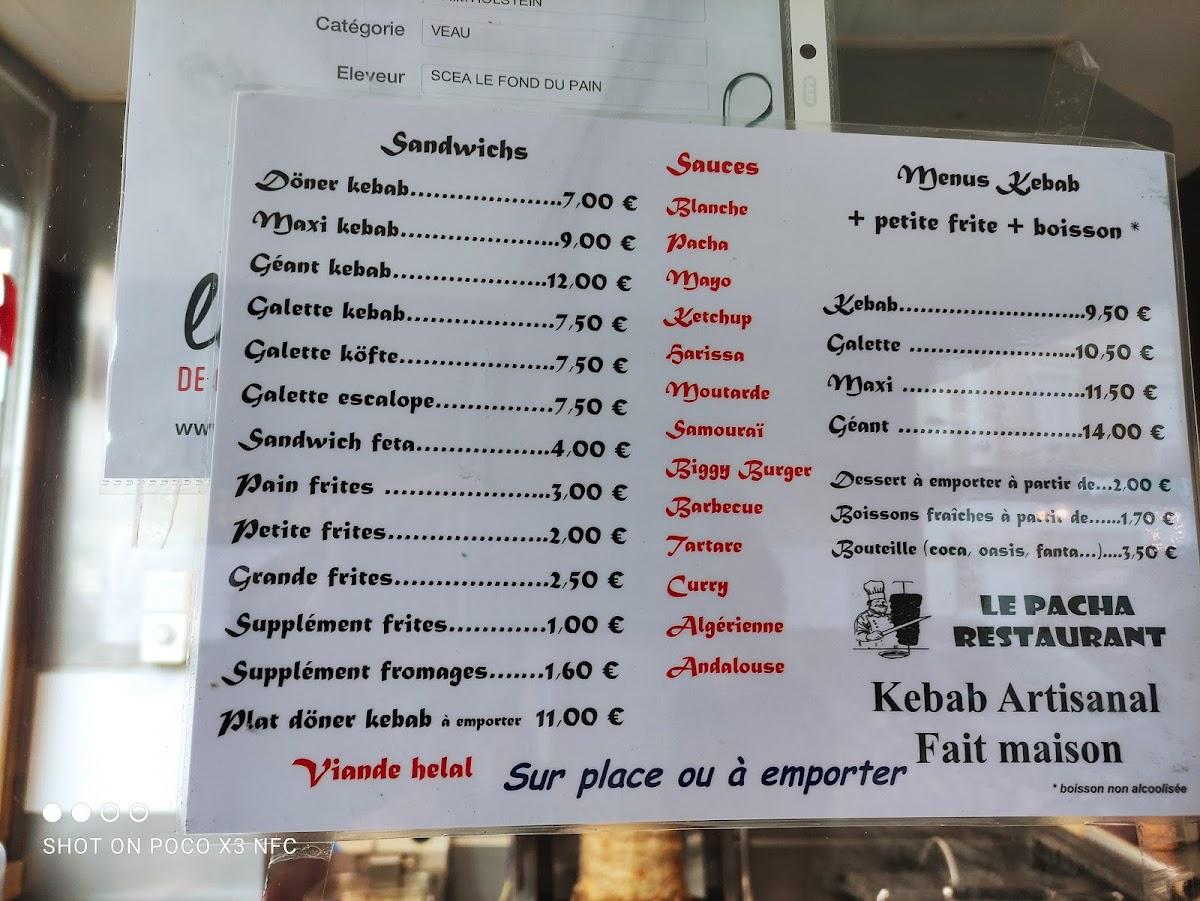 Catégorie VEAU
Eleveur SCEA LE FOND DU PAIN
DE
www
Sandwichs
Döner kebab....................7,00 €
Maxi kebab.....................9,00 €
Géant kebab....................12,00 €
Galette kebab...................7,50 €
Galette köfte....................7,50 €
Galette escalope...............7,50 €
Sandwich feta.................4,00 €
Pain frites .....................3,00 €
Petite frites.....................2,00 €
Grande frites....................2,50 €
Supplément frites............1,00 €
Supplément fromages.......1,60 €
Plat döner kebab à emporter 11,00 €
Sauces
Blanche
Pacha
Mayo
Ketchup
Harissa
Moutarde
Samouraï
Biggy Burger
Barbecue
Tartare
Curry
Algérienne
Andalouse
Menus Kebab
+ petite frite + boisson *
Kebab........................9,50 €
Galette ......................10,50 €
Maxi ........................11,50 €
Géant ........................14,00 €
Dessert à emporter à partir de...2,00 €
Boissons fraîches à partir de......1,70 €
Bouteille (coca, oasis, fanta...)....3,50 €
LE PACHA
RESTAURANT
Kebab Artisanal
Fait maison
* boisson non alcoolisée
Viande helal
Sur place ou à emporter
SHOT ON POCO X3 NFC